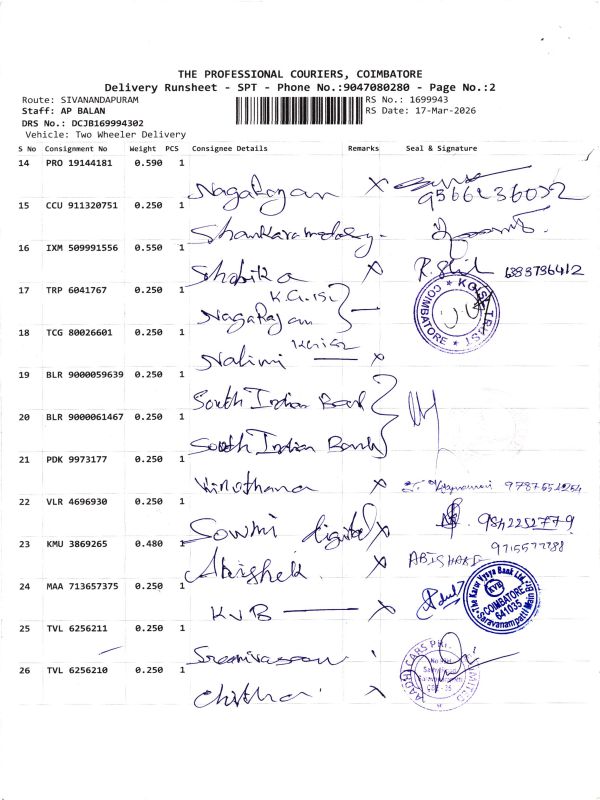 THE PROFESSIONAL COURIERS, COIMBATORE
Delivery Runsheet - SPT - Phone No.:9047080280 - Page No.:2
Route: SIVANANDAPURAM
RS No.: 1699943
Staff: AP BALAN
RS Date: 17-Mar-2026
DRS No.: DCJB169994302
Vehicle: Two Wheeler Delivery
S No Consignment No Weight PCS Consignee Details Remarks Seal & Signature
14 PRO 19144181 0.590 1
Nagarajan X
15 CCU 911320751 0.250 1
16 IXM 509991556 0.550 1
Shabika X
17 TRP 6041767 0.250 1
Nagarajan
COIMBATORE
18 TCG 80026601 0.250 1
Nalini X
19 BLR 9000059639 0.250 1
South Indian Bank
20 BLR 9000061467 0.250 1
South Indian Bank
21 PDK 9973177 0.250 1
Vinothana X
22 VLR 4696930 0.250 1
Sowmi digital X
23 KMU 3869265 0.480 1
Abishek X
24 MAA 713657375 0.250 1
KVB X
The Karur Vysya Bank Ltd.
KVB
COIMBATORE
641035
Saravanampatti
25 TVL 6256211 0.250 1
26 TVL 6256210 0.250 1
Chithra X